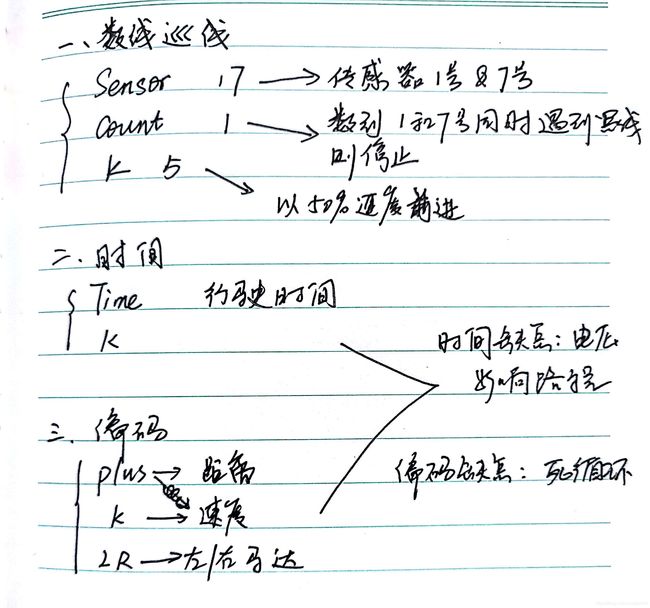 一、数线巡线
Sensor 17 → 传感器1号及7号
count 1 → 数到1和7号同时遇到黑线
则停止
K 5 → 以50%速度前进
二、时间
Time 行驶时间
K
时间缺点：电压
影响路程
三、编码
plus → 距离
编码缺点：死循环
K → 速度
LR → 左/右马达